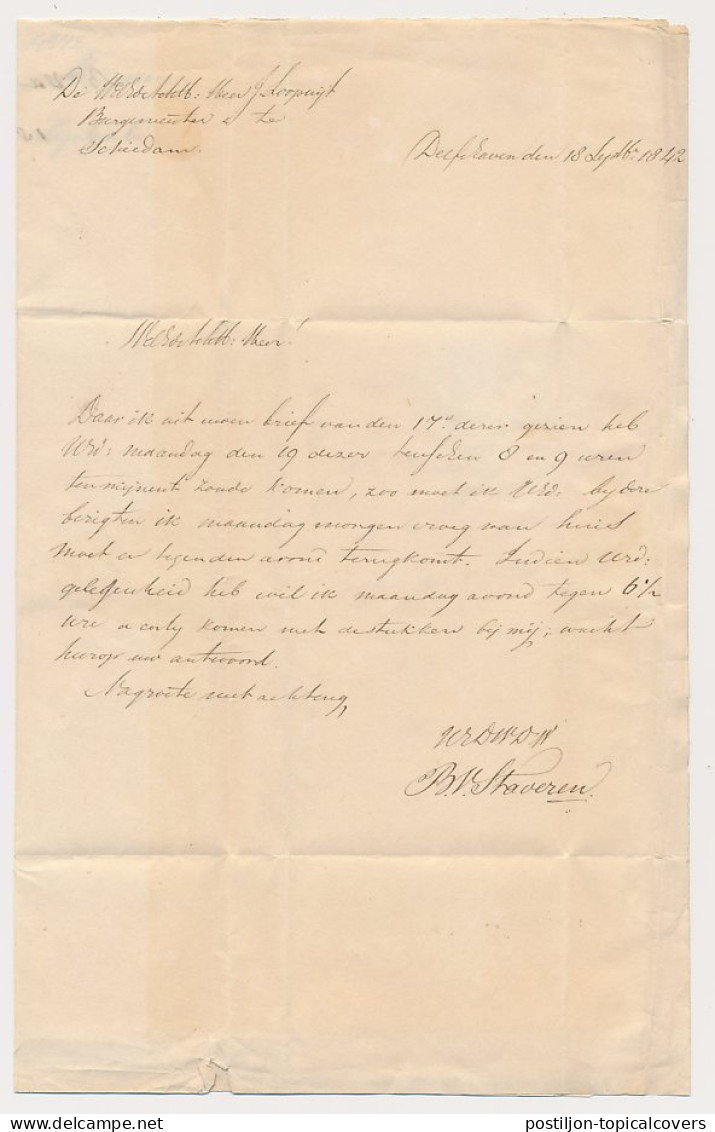 De WelEdeAchtb: Heer J Loopuijt
Burgemeester te
Schiedam.
Delfshaven den 18 Septbr: 1842
WelEdeAchtb: Heer!
Daar ik uit uwen brief van den 17n dezer gezien heb
UEd: maandag den 19 dezer tusschen 8 en 9 uren
ten mijnent zoude komen, zoo moet ik UEd: bij deze
berigten ik maandag morgen vroeg van huis
moet en tegen den avond terugkomt. Indien UEd:
gelegenheid heb wil ik maandag avond tegen 6½
ure komen met de stukken bij mij; wacht
hierop uw antwoord.
Na groete met achting
UEDWDW
B.V. Staveren.
postiljon-topicalcovers